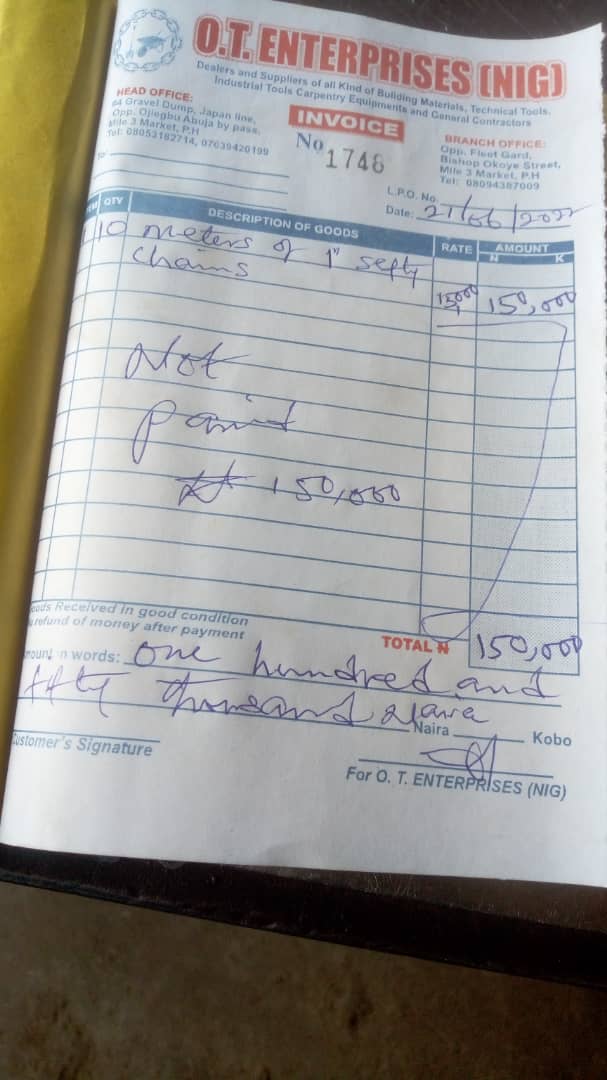 O.T. ENTERPRISES (NIG)
Dealers and Suppliers of all Kind of Building Materials, Technical Tools.
Industrial Tools Carpentry Equipments and General Contractors
HEAD OFFICE:
64 Gravel Dump, Japan line,
Opp. Ojiegbu Abuja by pass.
Mile 3 Market, P.H
Tel: 08053182714, 07039420199
INVOICE
No 1746
BRANCH OFFICE:
Opp. Fleet Gard,
Bishop Okoye Street,
Mile 3 Market, P.H
Tel: 08094387009
L.P.O. No.
Date: 27/06/2022
QTY DESCRIPTION OF GOODS RATE AMOUNT
N K
10 meters of 1" sefty
chains
15000 150,000
Not
paid
₦ 150,000
Goods Received in good condition
refund of money after payment
TOTAL N 150,000
Amount in words: One hundred and
fifty thousand Naira
Naira Kobo
Customer's Signature
For O. T. ENTERPRISES (NIG)